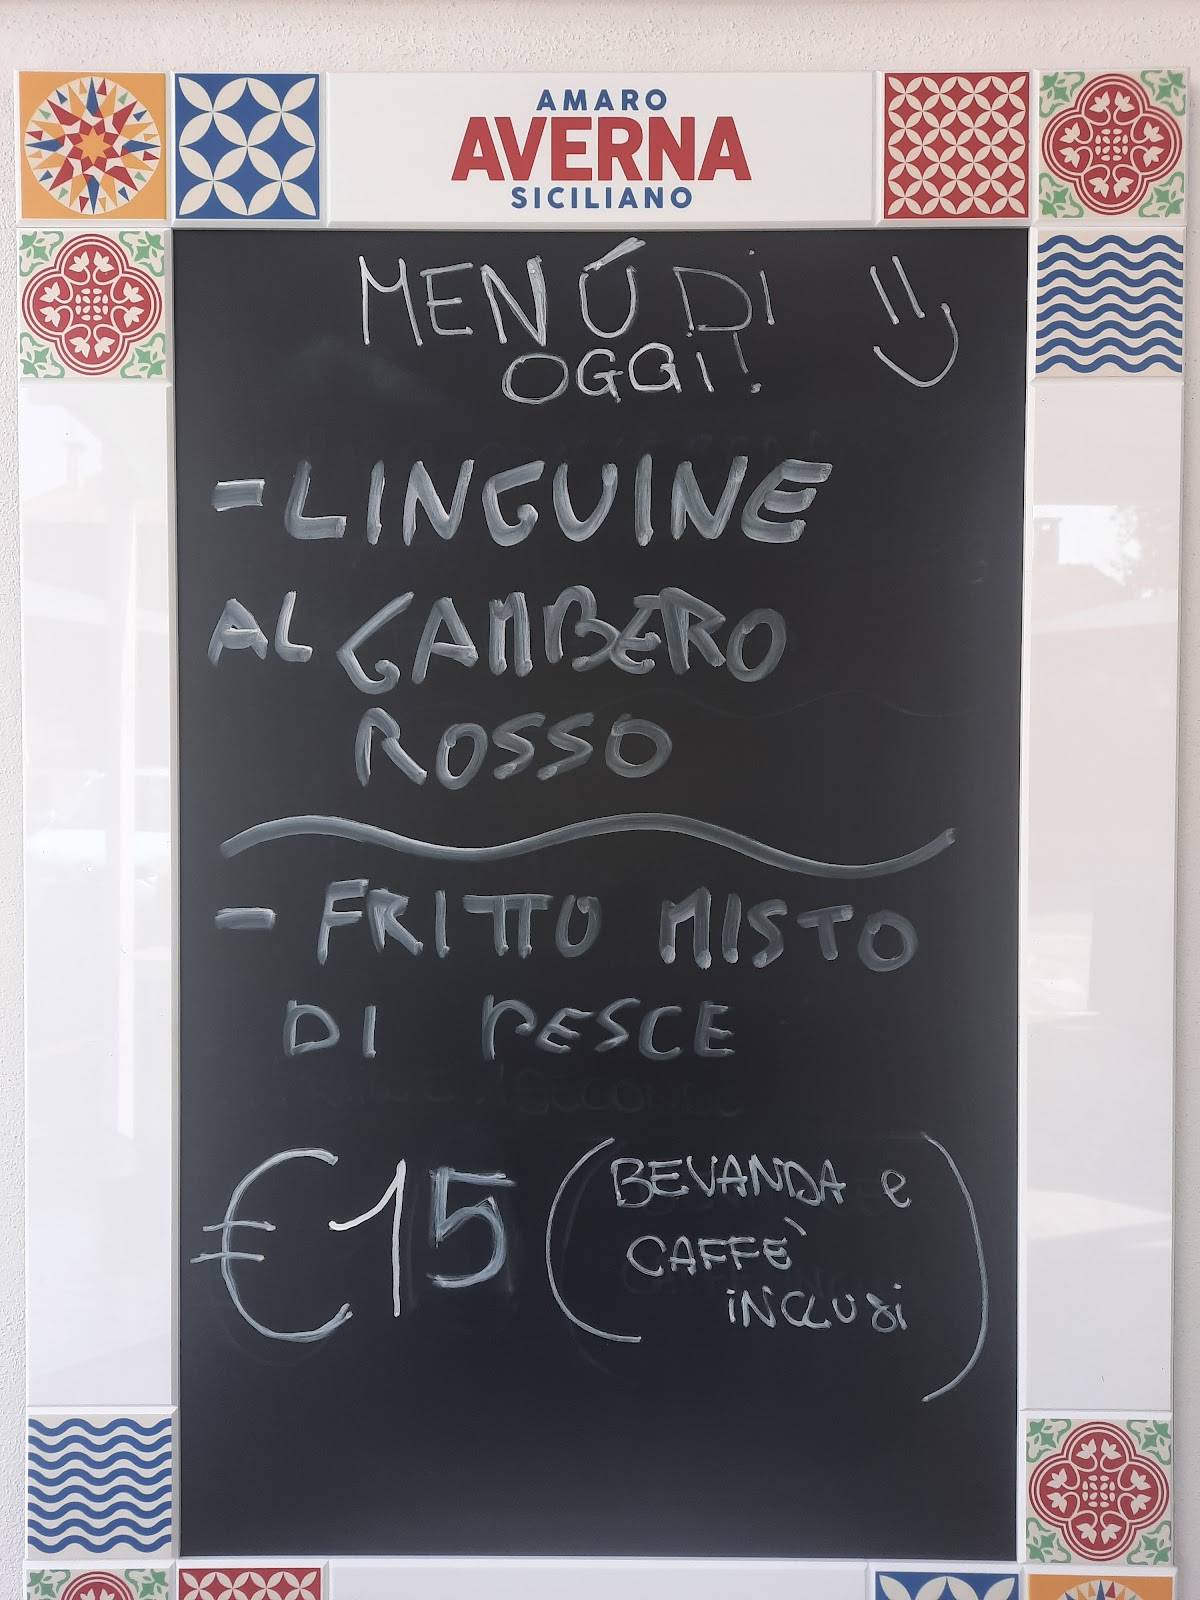 AMARO
AVERNA
SICILIANO
MENÚ DI
OGGI!
- LINGUINE
AL GAMBERO
ROSSO
- FRITTO MISTO
DI PESCE
€15 (BEVANDA e
CAFFÈ
iNCLUSi)